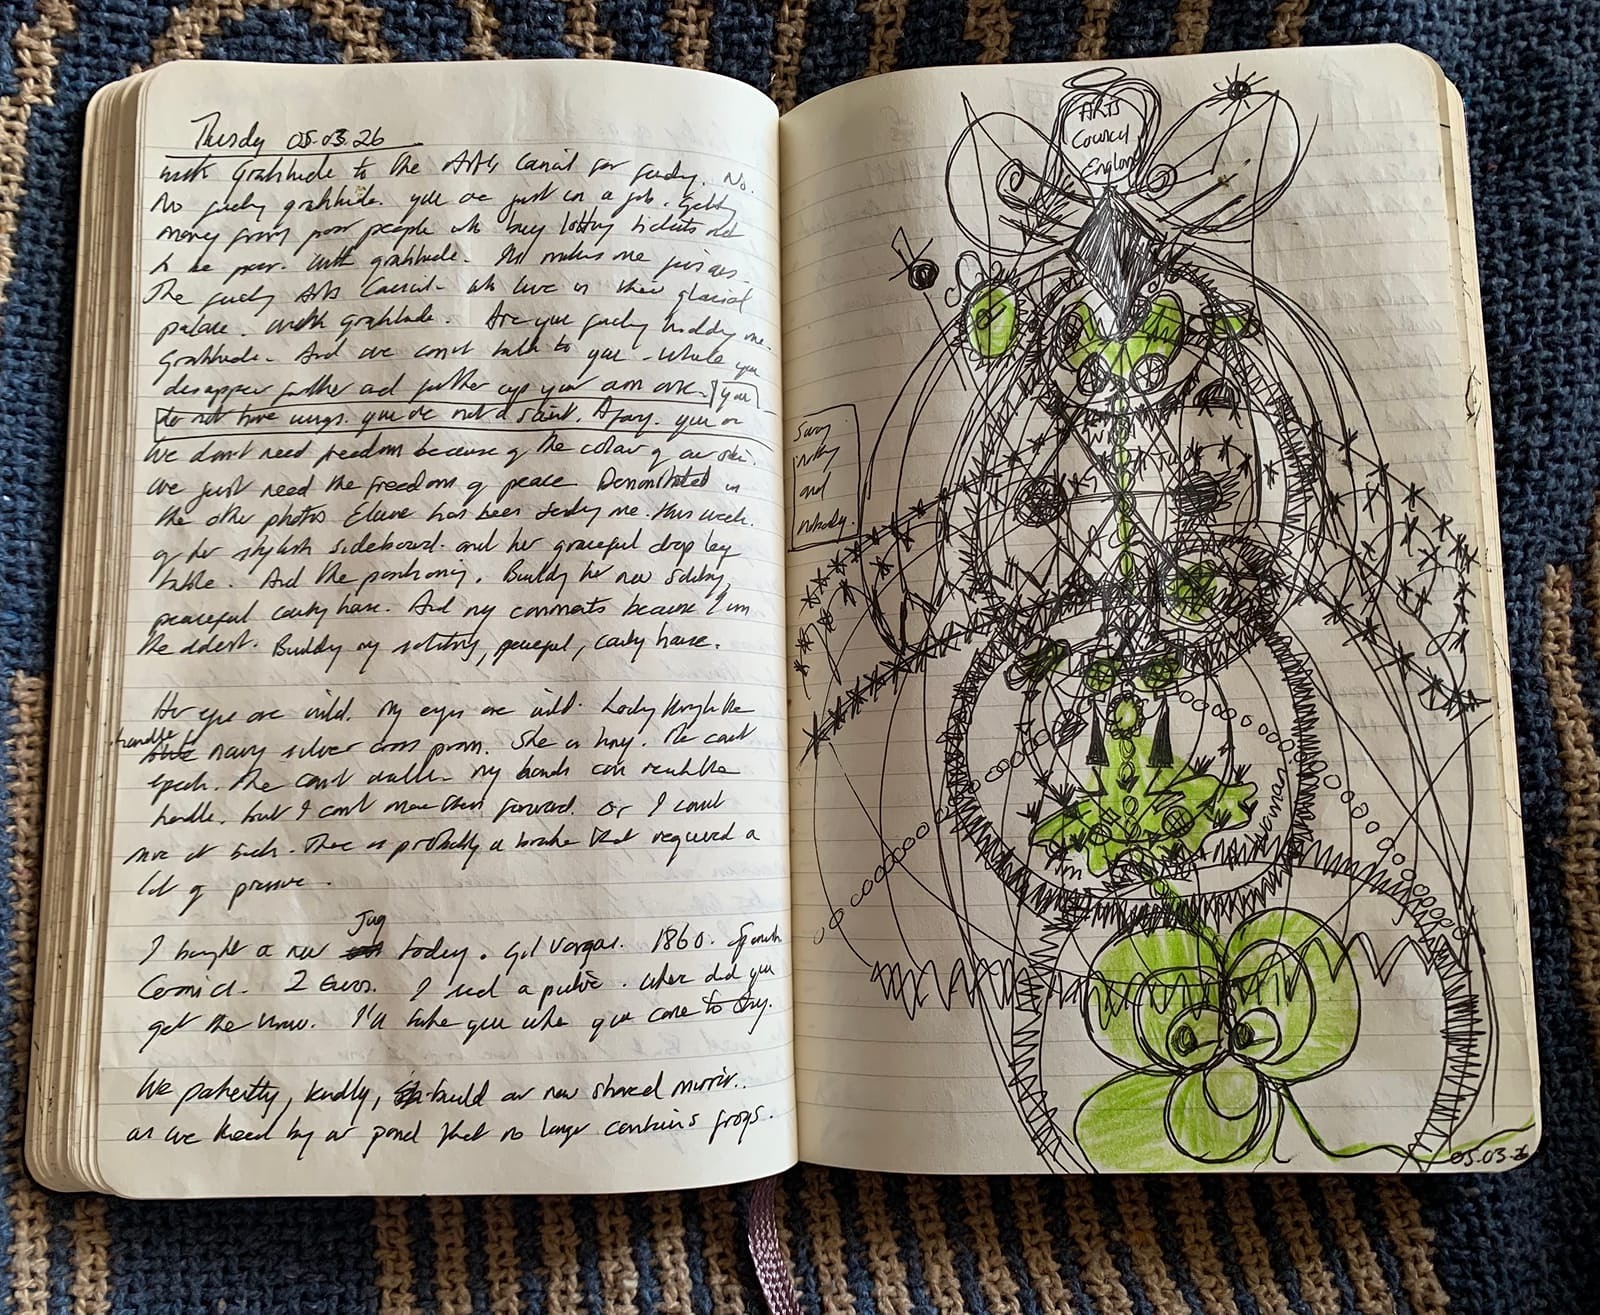 Thursday 05.03.26
with Gratitude to the Arts Council for funding. No.
No fucking gratitude. you are just in a job. Getting
money from poor people who buy lottery tickets not
to be poor. with gratitude. This makes me
The fucking Arts Council - who live in their glacial
palace. with gratitude. Are you fucking kidding me.
Gratitude. And we can't talk to you - while you
disappear further and further up your own arse. you
do not have wings. you are not a saint. you are
We don't need freedom because of the colour of our skin.
we just need the freedom of peace Demonstrated in
the other photos Elaine has been sending me. this week.
of her stylish sideboard. and her graceful drop leg
table. And the positioning. Building her new solitary,
peaceful, caring home. And my comments because I am
the oldest. Building my solitary, peaceful, caring home.
Her eyes are wild. My eyes are wild. Looking through the
handle
navy silver cross pram. She is tiny. She can't
speak. She can't walk. my hands can reach the
handle. but I can't move them forward. Or I could
move it back. There is probably a brake that required a
lot of pressure.
Jug
I bought a new today. Gil Vargas. 1860. Spanish
Ceramic. 2 Euros. I sent a picture. where did you
get the know. I'll take you when you come to stay.
We patiently, kindly, build our new shared mirror..
as we kneel by our pond that no longer contains frogs.
ARTS
Council
England
Sorry
and
nobody.
With
I'm
woman
05.03.26